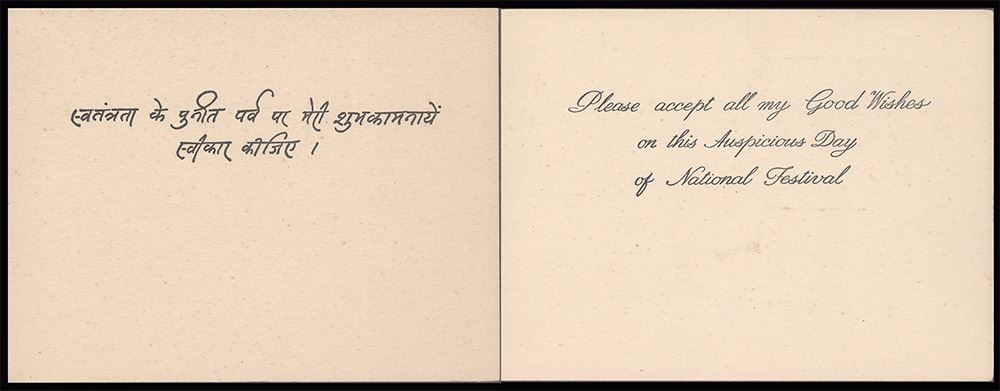 स्वतंत्रता के पुनीत पर्व पर मेरी शुभकामनायें
स्वीकार कीजिए ।
Please accept all my Good Wishes
on this Auspicious Day
of National Festival